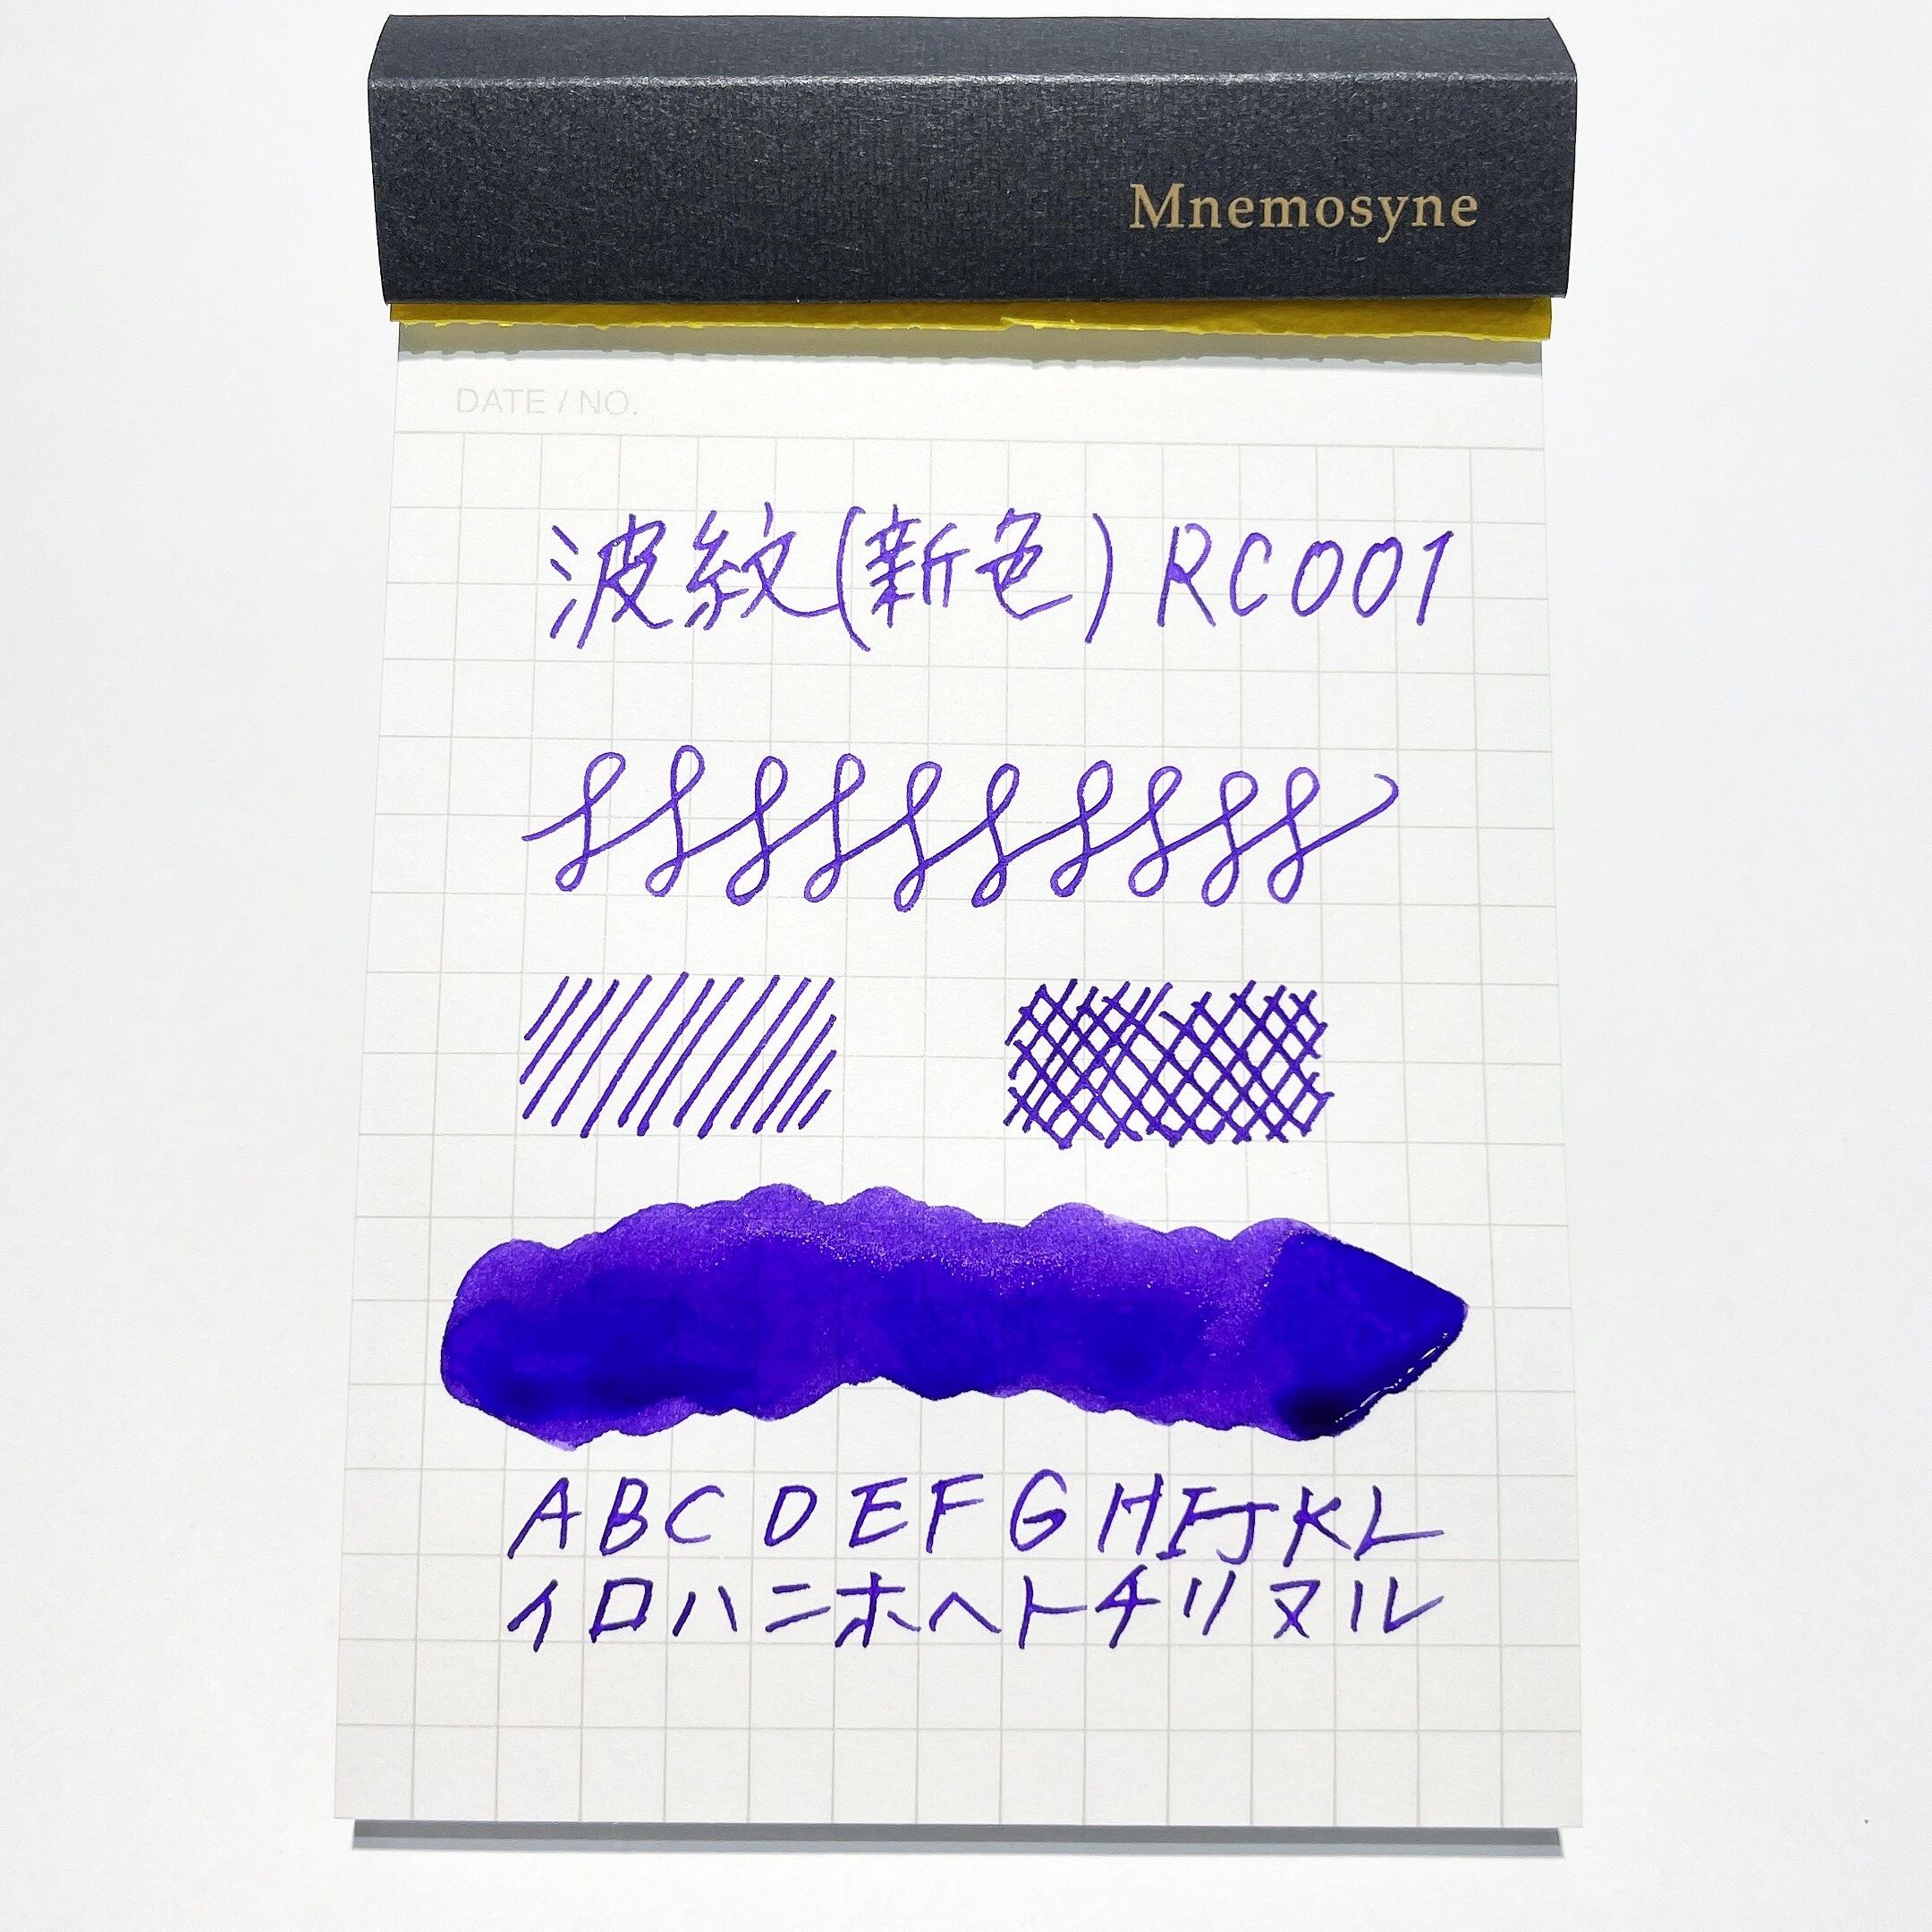 Mnemosyne
DATE / NO.
波紋(新色) RC001
ABCDEFGHIJKL
イロハニホヘトチリヌル